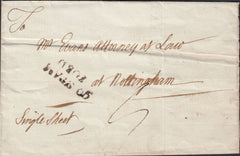 To
Mr Evans Attorney at Law
at Nottingham
Single Sheet